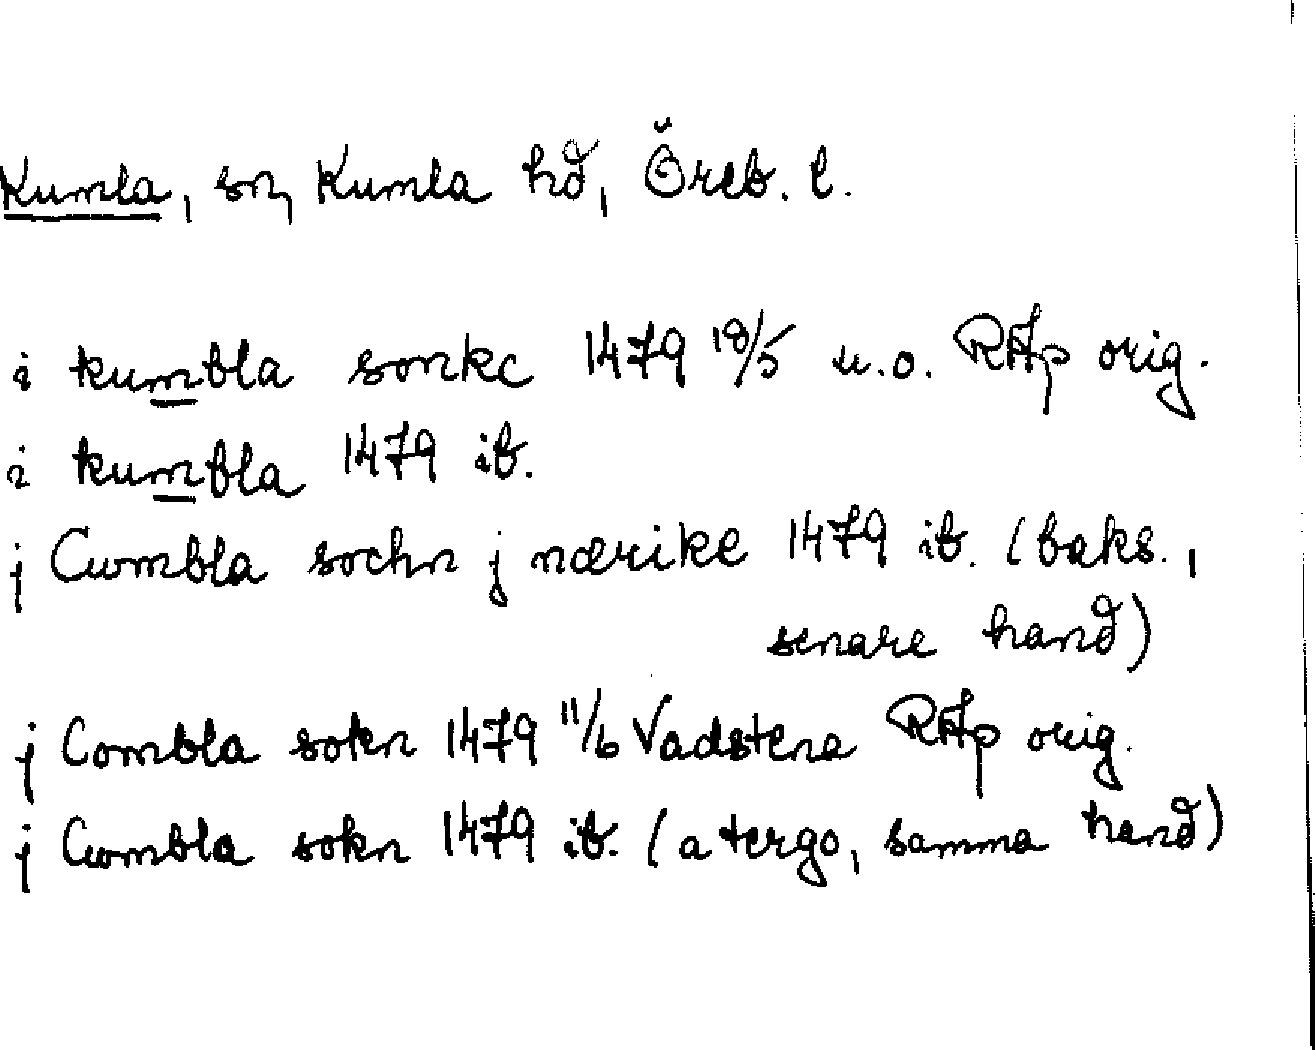 Kumla, sn, Kumla hd, Öreb. l.
i kumbla sonkc 1479 18/5 u.o. RAp orig.
i kumbla 1479 ib.
j Cwmbla sochn j nærike 1479 ib. (baks.,
senare hand)
j Combla sokn 1479 11/6 Vadstena RAp orig.
j Cwmbla sokn 1479 ib. (a tergo, samma hand)